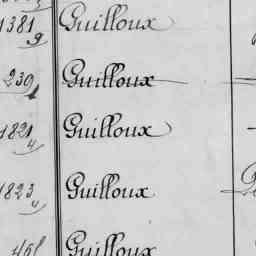 1381 Guilloux
9
230 Guilloux
1
1821 Guilloux
4
1823 Guilloux
4
Guilloux